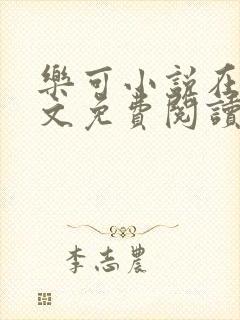 樂可小說在
文免費閱讀
李志農